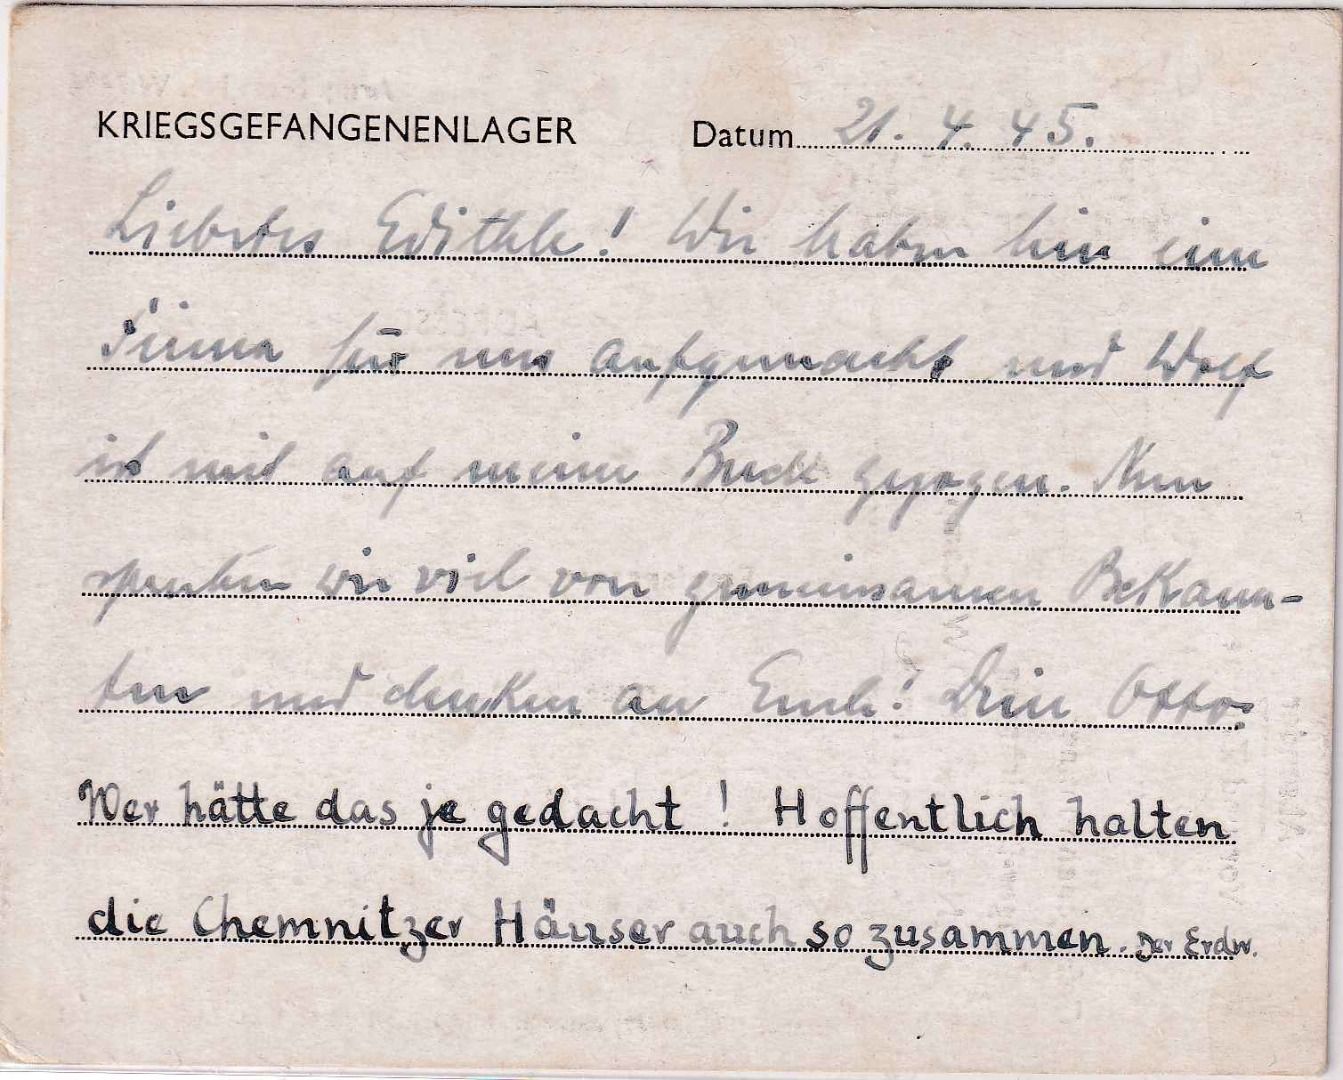 KRIEGSGEFANGENENLAGER Datum 21. 4. 45.
Liebstes Edithle! Wir haben hier eine
Firma für uns aufgemacht und Wolf
ist mit auf meine Bude gezogen. Nun
wir viel von gemeinsamen Bekann-
ten und denken an Euch! Dein Otto.
Wer hätte das je gedacht! Hoffentlich halten
die Chemnitzer Häuser auch so zusammen. Der Erdw.